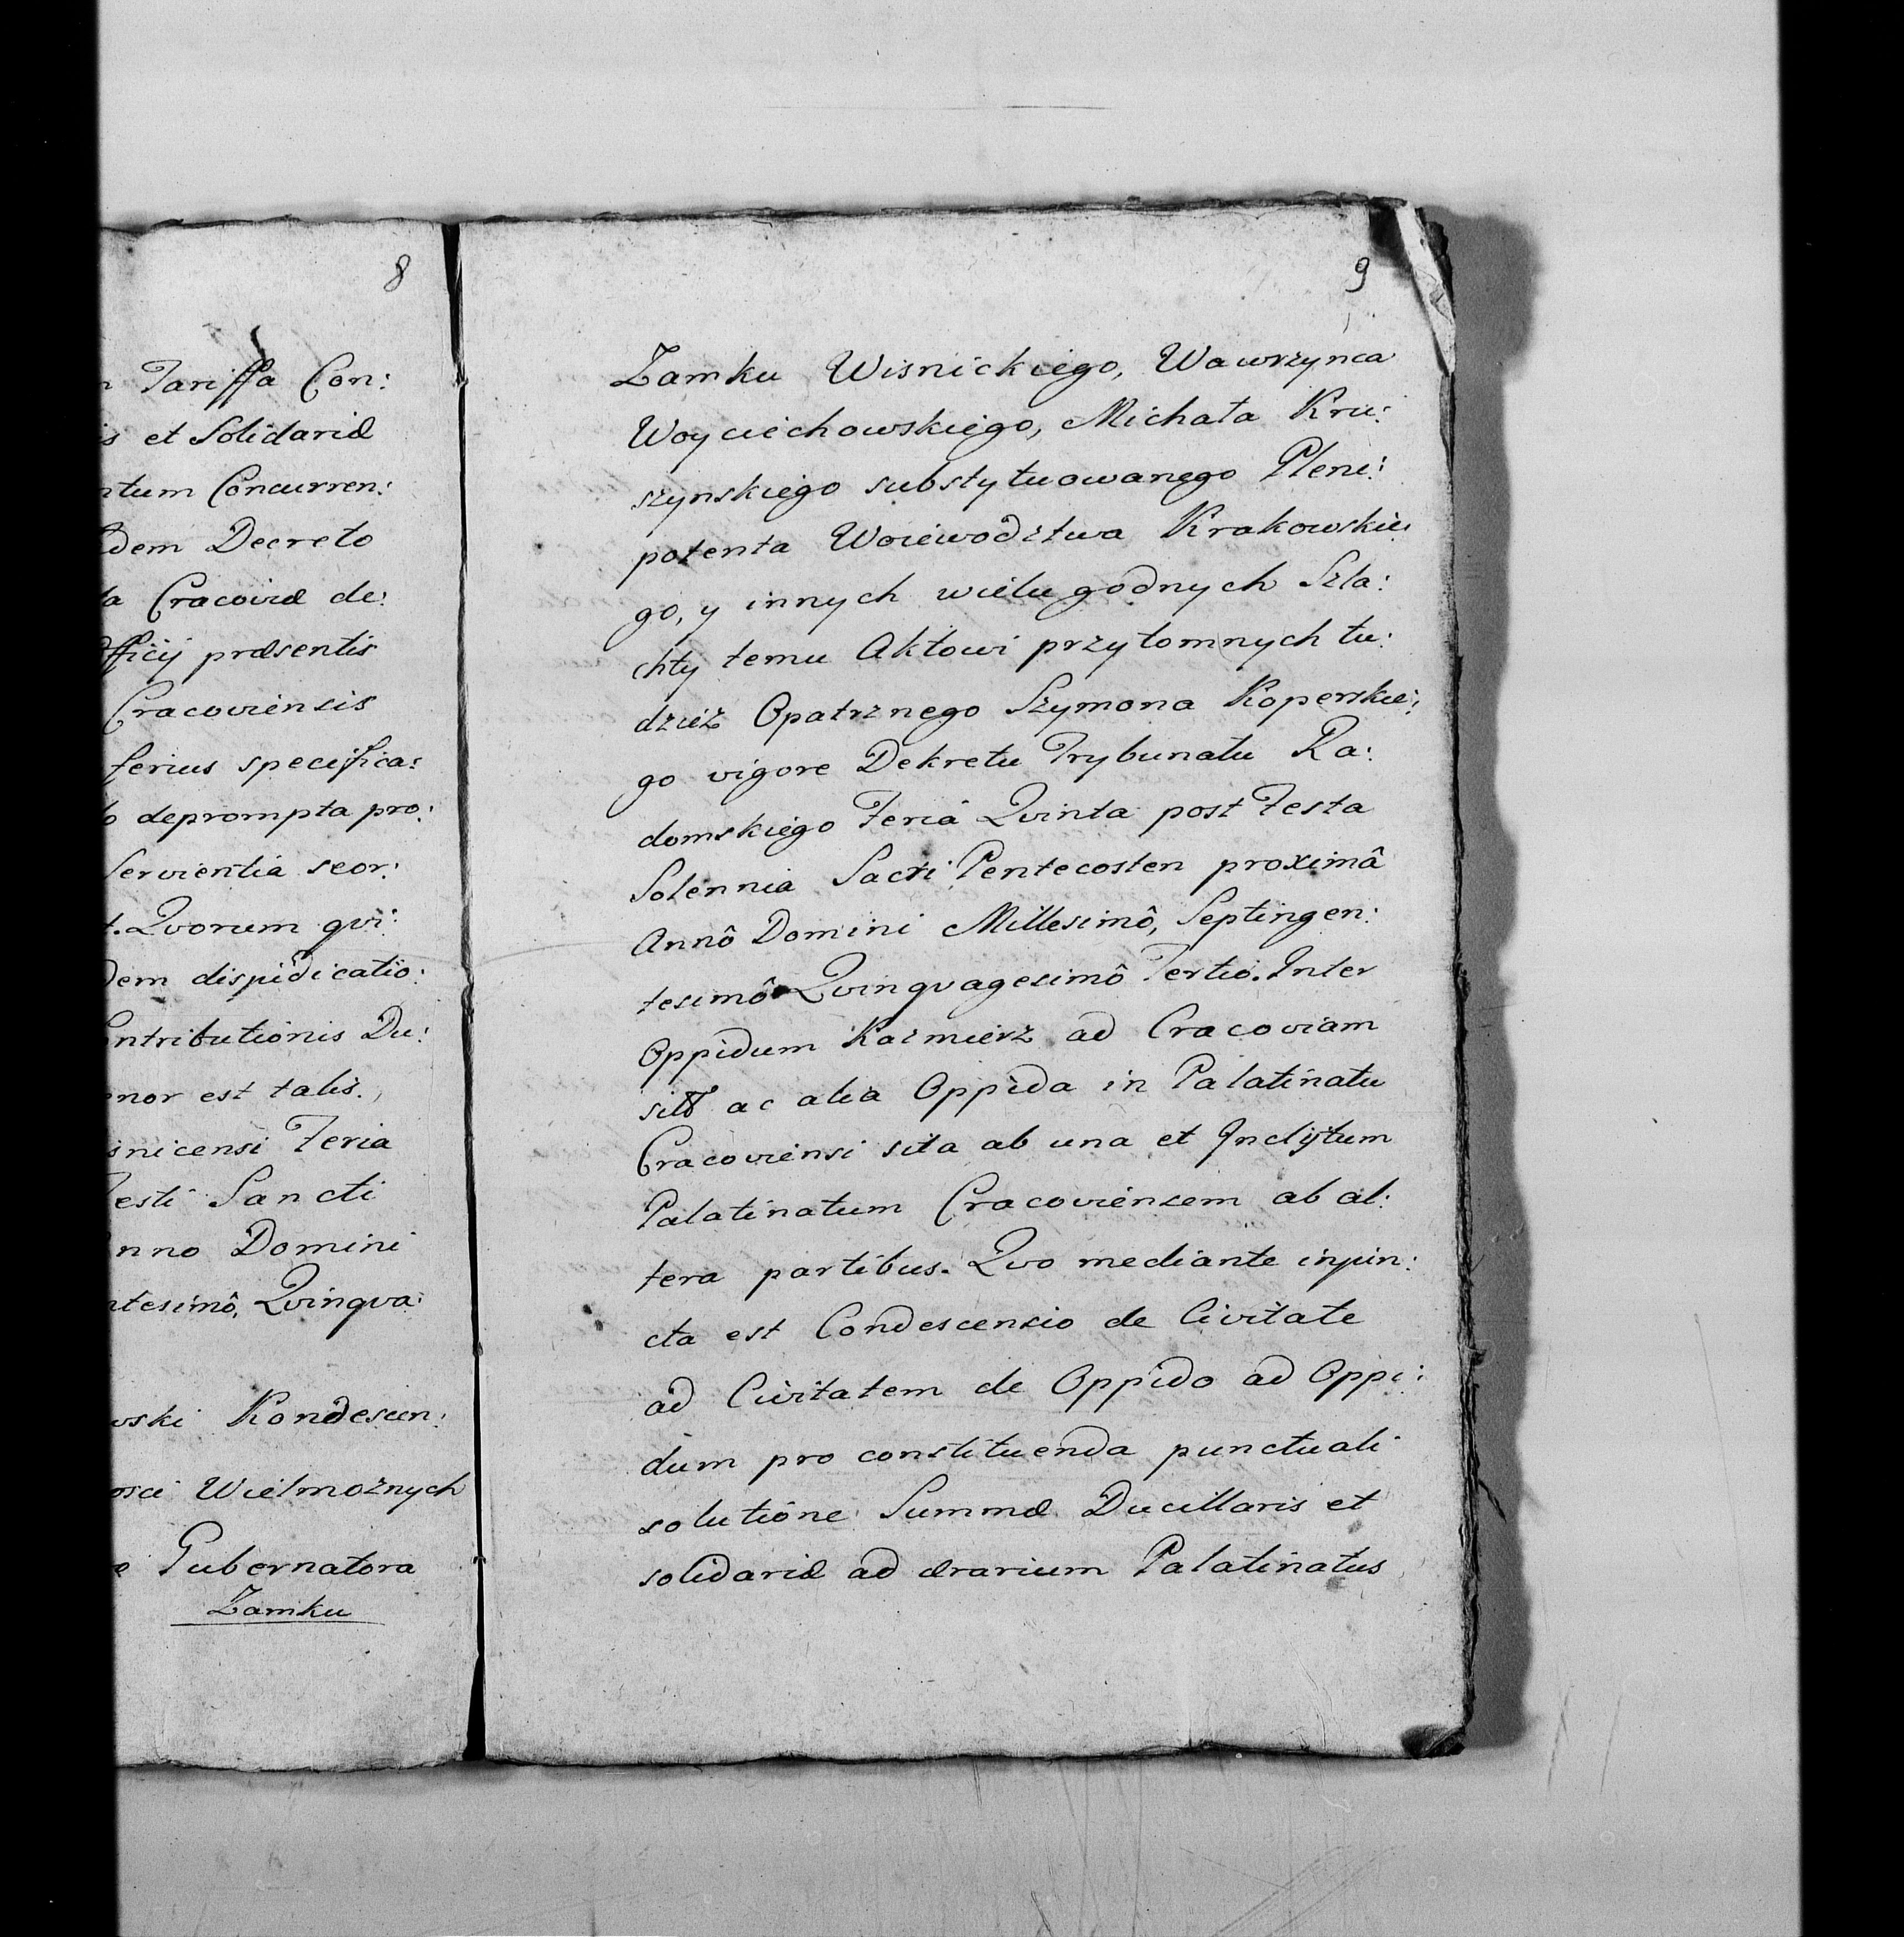 8
Tariffa Con:
et Solidariæ
ntum Concurren:
dem Decreto
Cracoviæ de:
fficij præsentis
Cracoviensis
ferius specifica:
deprompta pro:
Servientia seor:
Qvorum qvi:
dem dispidicatio:
ontributionis Du:
enor est talis.
snicensi Feria
Festi Sancti
nno Domini
ntesimô, Qvinqva:
wski Kondescen:
osci Wielmożnych
Gubernatora
Zamku
9
Zamku Wisnickiego, Wawrzynca
Woyciechowskiego, Michała Kru:
szynskiego substytuowanego Pleni:
potenta Woiewodztwa Krakowskie:
go, y innych wielu godnych Szla:
chty temu Aktowi przytomnych tu:
dzież Opatrznego Szymona Koperskie:
go vigore Dekretu Trybunału Ra:
domskiego Feriâ Qvinta post Festa
Solennia Sacri Pentecosten proximâ
Annô Domini Millesimô, Septingen:
tesimô Qvinqvagesimô Tertio. Inter
Oppidum Kazmierz ad Cracoviam
ac alia Oppida in Palatinatu
Cracoviensi sita ab una et Inclÿtum
Palatinatum Cracoviensem ab al:
tera partibus. Qvo mediante injun:
cta est Condescensio de Civitate
ad Civitatem de Oppido ad Oppi:
dum pro constituenda punctuali
solutione Summæ Ducillaris et
solidariæ ad ærarium Palatinatus